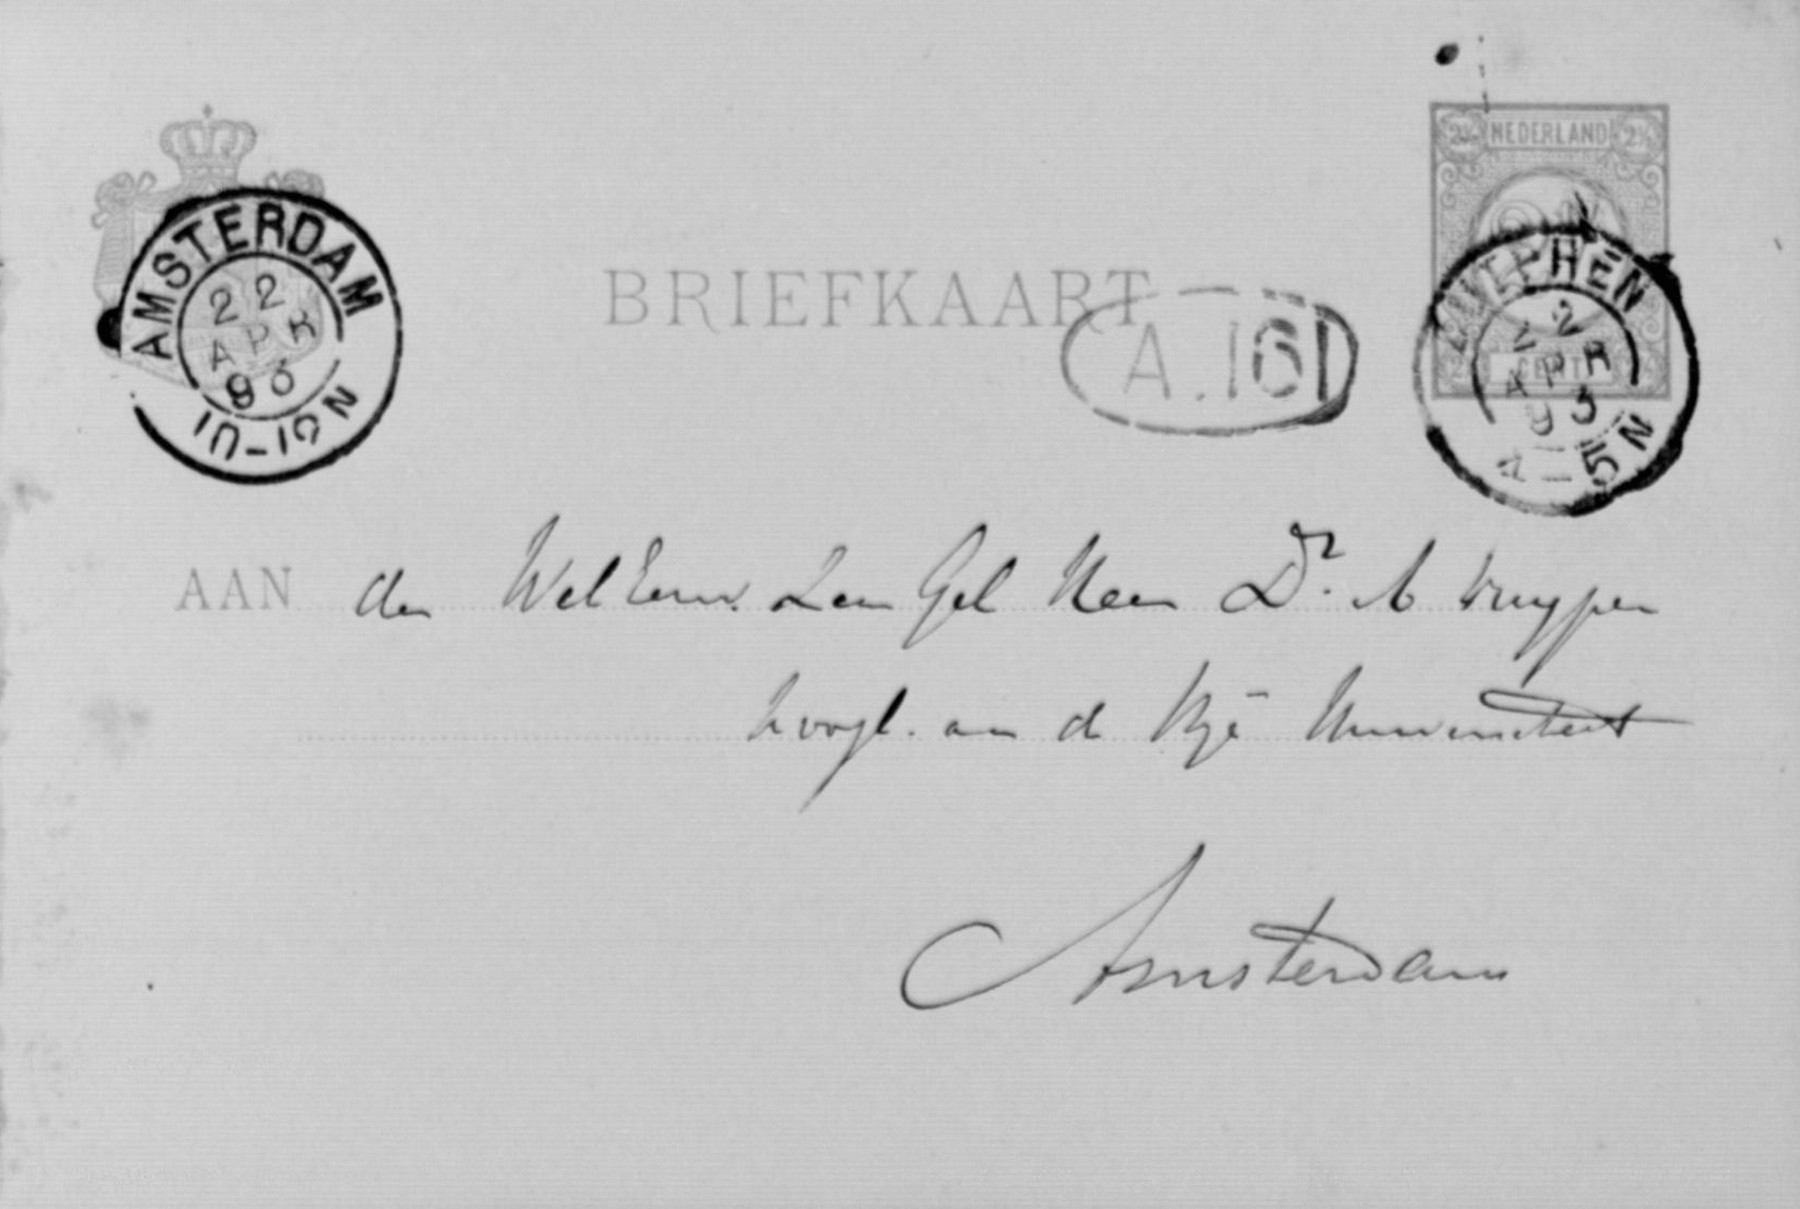 NEDERLAND
2½ 2½
CENT
BRIEFKAART
AMSTERDAM
22
APR
93
10-12N
A.161
ZUTPHEN
22
APR
93
4-5N
AAN den WelEerw. Zeer Gel Heer Dr. A Kuyper
hoogl. aan de Vrije Universiteit
Amsterdam